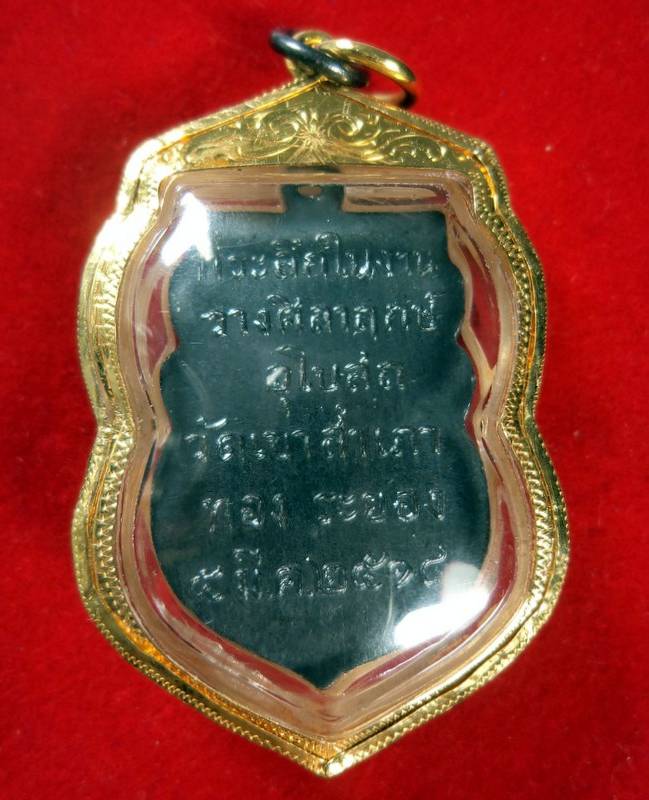 ที่ระลึกในงาน
วางศิลาฤกษ์
อุโบสถ
วัดเขาสำเภา
ทอง ระยอง
๕ มี.ค. ๒๕๑๘